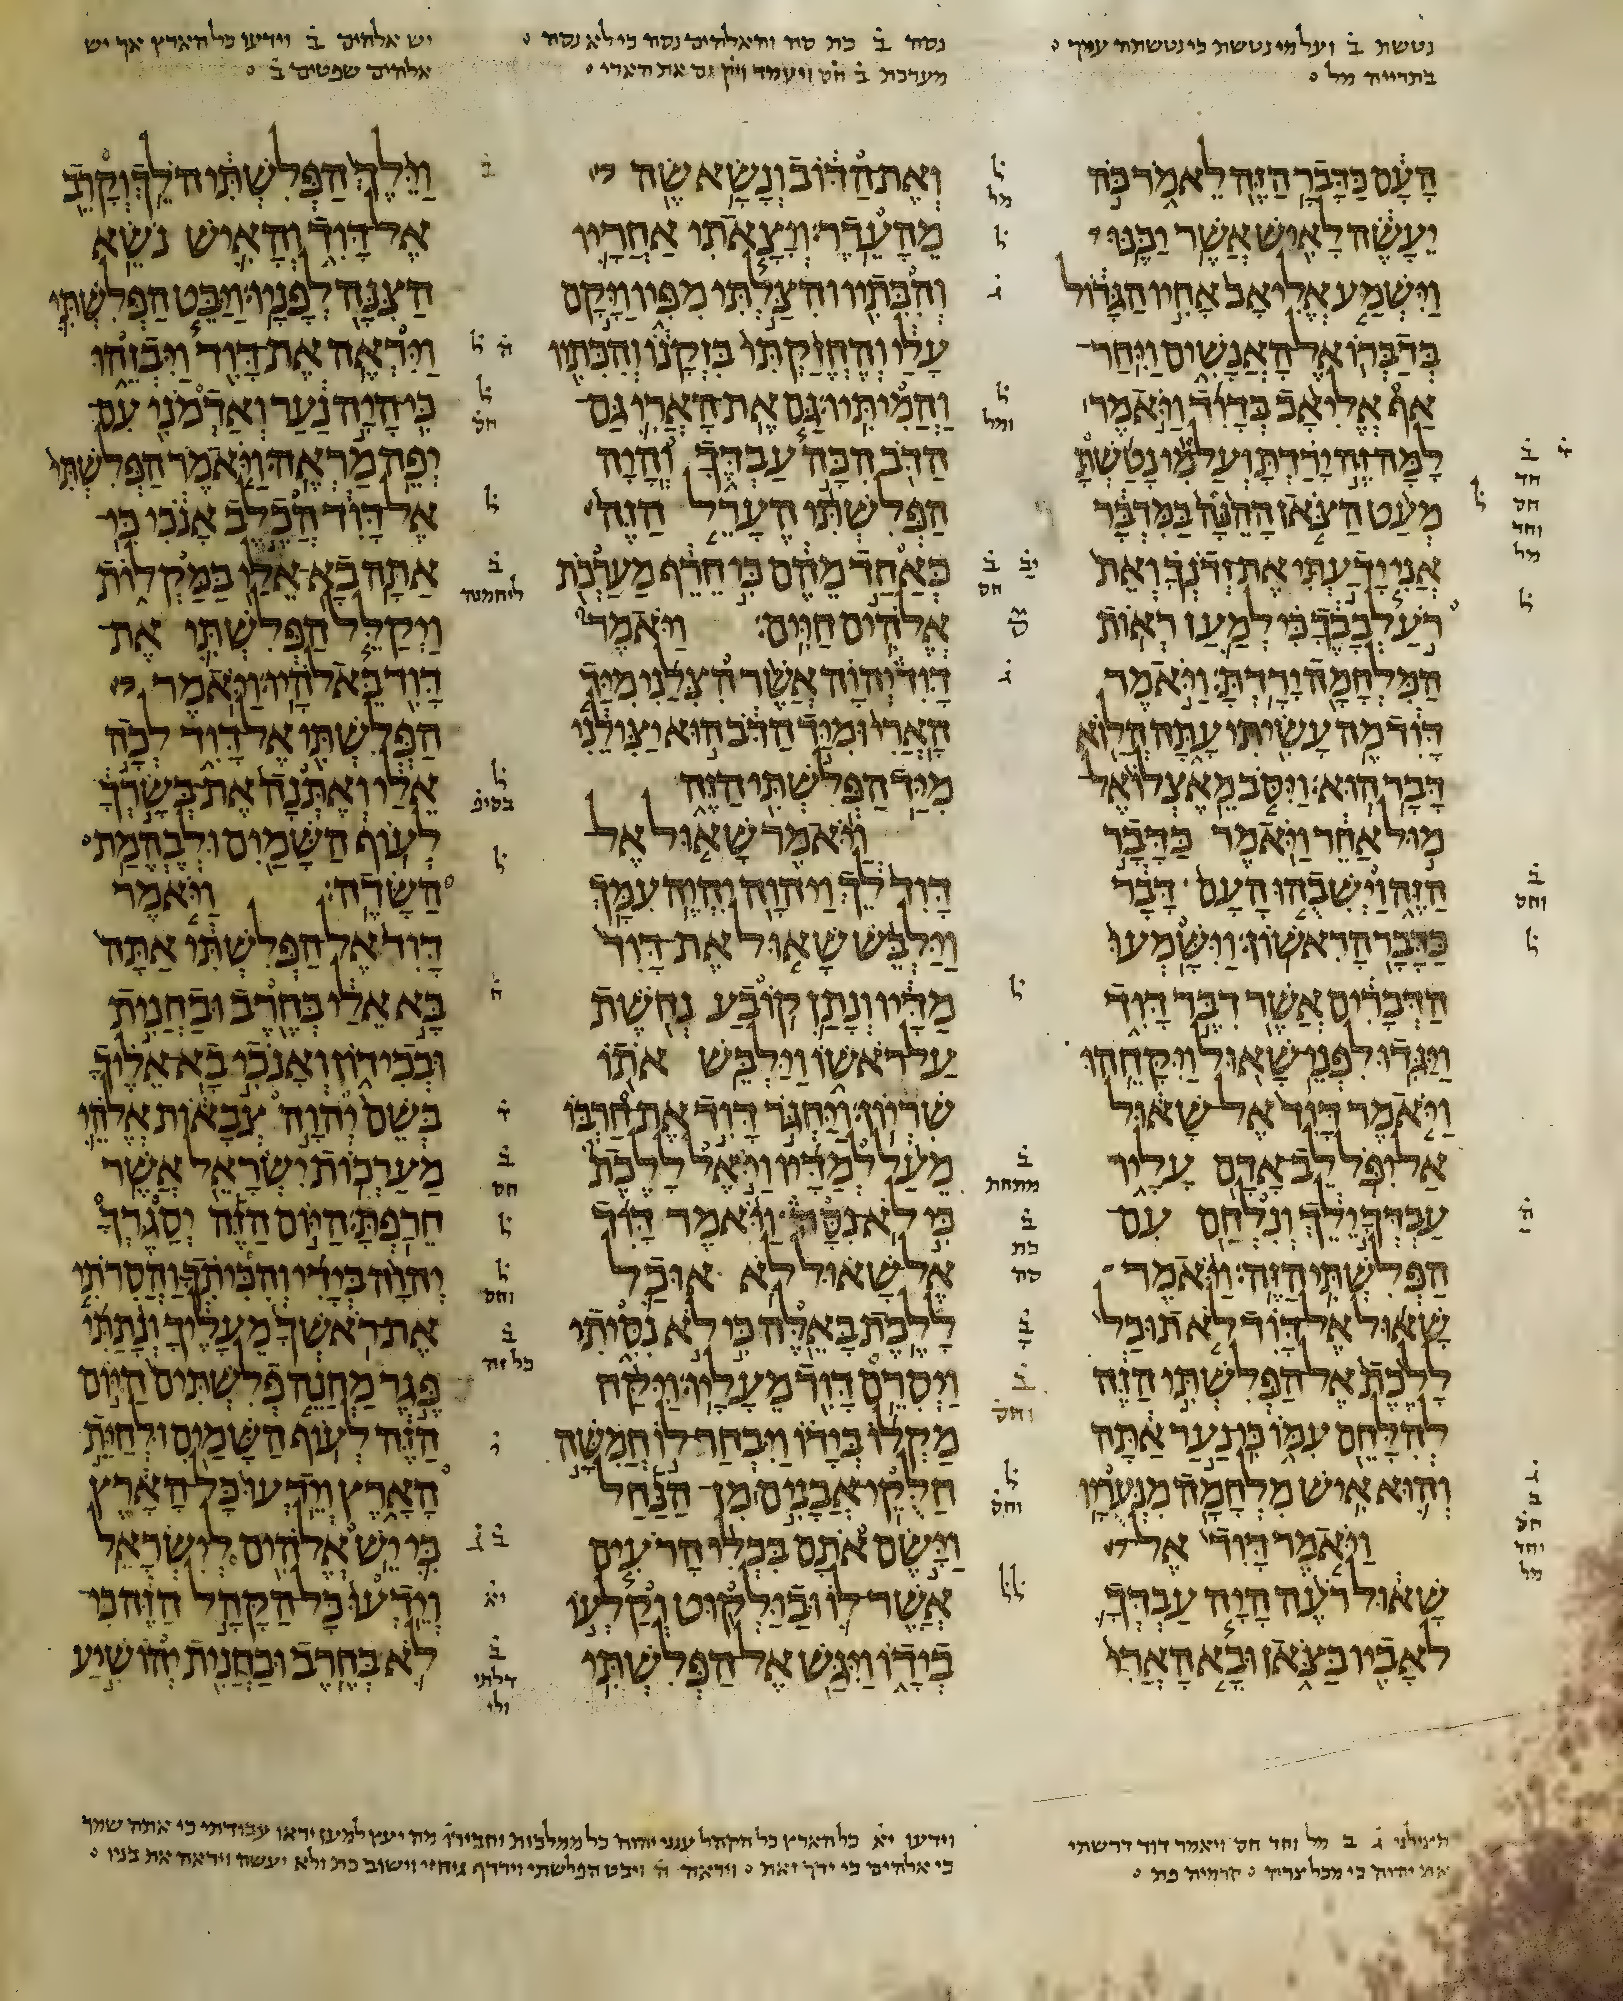 נטשת ב ועל מי נטשת כי נטשתה עמך
בתרייה מל
נסה ב כת סה והאלהים נסה כי לא נסה
מערכת ב חס ויעמד ויך גם את הארי
יש אלהים ב וידעו כל הארץ אך יש
אלהים שפטים ב
הָעָם כַּדָּבָר הַזֶּה לֵאמֹר כֹּה
יֵעָשֶׂה לָאִישׁ אֲשֶׁר יַכֶּנּוּ׃
וַיִּשְׁמַע אֱלִיאָב אָחִיו הַגָּדוֹל
בְּדַבְּרוֹ אֶל הָאֲנָשִׁים וַיִּחַר
אַף אֱלִיאָב בְּדָוִד וַיֹּאמֶר
לָמָּה זֶּה יָרַדְתָּ וְעַל מִי נָטַשְׁתָּ
מְעַט הַצֹּאן הָהֵנָּה בַּמִּדְבָּר
אֲנִי יָדַעְתִּי אֶת זְדֹנְךָ וְאֵת
רֹעַ לְבָבֶךָ כִּי לְמַעַן רְאוֹת
הַמִּלְחָמָה יָרָדְתָּ׃ וַיֹּאמֶר
דָּוִד מֶה עָשִׂיתִי עָתָּה הֲלוֹא
דָּבָר הוּא׃ וַיִּסֹּב מֵאֶצְלוֹ אֶל
מוּל אַחֵר וַיֹּאמֶר כַּדָּבָר
הַזֶּה וַיְשִׁבֻהוּ הָעָם דָּבָר
כַּדָּבָר הָרִאשׁוֹן׃ וַיִּשָּׁמְעוּ
הַדְּבָרִים אֲשֶׁר דִּבֶּר דָּוִד
וַיַּגִּדוּ לִפְנֵי שָׁאוּל וַיִּקָּחֵהוּ׃
וַיֹּאמֶר דָּוִד אֶל שָׁאוּל
אַל יִפֹּל לֵב אָדָם עָלָיו
עַבְדְּךָ יֵלֵךְ וְנִלְחַם עִם
הַפְּלִשְׁתִּי הַזֶּה׃ וַיֹּאמֶר
שָׁאוּל אֶל דָּוִד לֹא תוּכַל
לָלֶכֶת אֶל הַפְּלִשְׁתִּי הַזֶּה
לְהִלָּחֵם עִמּוֹ כִּי נַעַר אַתָּה
וְהוּא אִישׁ מִלְחָמָה מִנְּעֻרָיו׃
וַיֹּאמֶר דָּוִד אֶל
שָׁאוּל רֹעֶה הָיָה עַבְדְּךָ
לְאָבִיו בַּצֹּאן וּבָא הָאֲרִי
וְאֶת הַדּוֹב וְנָשָׂא שֶׂה
מֵהָעֵדֶר׃ וְיָצָאתִי אַחֲרָיו
וְהִכִּתִיו וְהִצַּלְתִּי מִפִּיו וַיָּקָם
עָלַי וְהֶחֱזַקְתִּי בִּזְקָנוֹ וְהִכִּתִיו
וַהֲמִיתִּיו׃ גַּם אֶת הָאֲרִי גַּם
הַדֹּב הִכָּה עַבְדֶּךָ וְהָיָה
הַפְּלִשְׁתִּי הֶעָרֵל הַזֶּה
כְּאַחַד מֵהֶם כִּי חֵרֵף מַעַרְכֹת
אֱלֹהִים חַיִּים׃ וַיֹּאמֶר
דָּוִד יְהוָה אֲשֶׁר הִצִּלַנִי מִיַּד
הָאֲרִי וּמִיַּד הַדֹּב הוּא יַצִּילֵנִי
מִיַּד הַפְּלִשְׁתִּי הַזֶּה
וַיֹּאמֶר שָׁאוּל אֶל
דָּוִד לֵךְ וַיהוָה יִהְיֶה עִמָּךְ׃
וַיַּלְבֵּשׁ שָׁאוּל אֶת דָּוִד
מַדָּיו וְנָתַן קוֹבַע נְחֹשֶׁת
עַל רֹאשׁוֹ וַיַּלְבֵּשׁ אֹתוֹ
שִׁרְיוֹן׃ וַיַּחְגֹּר דָּוִד אֶת חַרְבּוֹ
מֵעַל לְמַדָּיו וַיֹּאֶל לָלֶכֶת
כִּי לֹא נִסָּה וַיֹּאמֶר דָּוִד
אֶל שָׁאוּל לֹא אוּכַל
לָלֶכֶת בָּאֵלֶּה כִּי לֹא נִסִּיתִי
וַיְסִרֵם דָּוִד מֵעָלָיו׃ וַיִּקַּח
מַקְלוֹ בְּיָדוֹ וַיִּבְחַר לוֹ חֲמִשָּׁה
חַלֻּקֵי אֲבָנִים מִן הַנַּחַל
וַיָּשֶׂם אֹתָם בִּכְלִי הָרֹעִים
אֲשֶׁר לוֹ וּבַיַּלְקוּט וְקַלְעוֹ
בְיָדוֹ וַיִּגַּשׁ אֶל הַפְּלִשְׁתִּי׃
וַיֵּלֶךְ הַפְּלִשְׁתִּי הֹלֵךְ וְקָרֵב
אֶל דָּוִד וְהָאִישׁ נֹשֵׂא
הַצִּנָּה לְפָנָיו׃ וַיַּבֵּט הַפְּלִשְׁתִּי
וַיִּרְאֶה אֶת דָּוִד וַיִּבְזֵהוּ
כִּי הָיָה נַעַר וְאַדְמֹנִי עִם
יְפֵה מַרְאֶה׃ וַיֹּאמֶר הַפְּלִשְׁתִּי
אֶל דָּוִד הֲכֶלֶב אָנֹכִי כִּי
אַתָּה בָא אֵלַי בַּמַּקְלוֹת
וַיְקַלֵּל הַפְּלִשְׁתִּי אֶת
דָּוִד בֵּאלֹהָיו׃ וַיֹּאמֶר
הַפְּלִשְׁתִּי אֶל דָּוִד לְכָה
אֵלַי וְאֶתְּנָה אֶת בְּשָׂרְךָ
לְעוֹף הַשָּׁמַיִם וּלְבֶהֱמַת
הַשָּׂדֶה׃ וַיֹּאמֶר
דָּוִד אֶל הַפְּלִשְׁתִּי אַתָּה
בָּא אֵלַי בְּחֶרֶב וּבַחֲנִית
וּבְכִידוֹן וְאָנֹכִי בָא אֵלֶיךָ
בְּשֵׁם יְהוָה צְבָאוֹת אֱלֹהֵי
מַעַרְכוֹת יִשְׂרָאֵל אֲשֶׁר
חֵרַפְתָּ׃ הַיּוֹם הַזֶּה יְסַגֶּרְךָ
יְהוָה בְּיָדִי וְהִכִּיתִךָ וַהֲסִרֹתִי
אֶת רֹאשְׁךָ מֵעָלֶיךָ וְנָתַתִּי
פֶּגֶר מַחֲנֵה פְלִשְׁתִּים הַיּוֹם
הַזֶּה לְעוֹף הַשָּׁמַיִם וּלְחַיַּת
הָאָרֶץ וְיֵדְעוּ כָּל הָאָרֶץ
כִּי יֵשׁ אֱלֹהִים לְיִשְׂרָאֵל׃
וְיֵדְעוּ כָּל הַקָּהָל הַזֶּה כִּי
לֹא בְּחֶרֶב וּבַחֲנִית יְהוֹשִׁיעַ
הצילני ג ב מל וחד חס ויאמר דוד דרשתי
את יהוה כי מכל צריה
וידעו יא כל הארץ כל הקהל ענני יהוה כל ממלכות וחבירו מה יעץ למען יראו עבודתי כי אתה שמך
כי אלהים כי ידך זאת ויראה ה ויבט הפלשתי וירדף גיחזי וישוב כת ולא יעשה ויראה את בניו